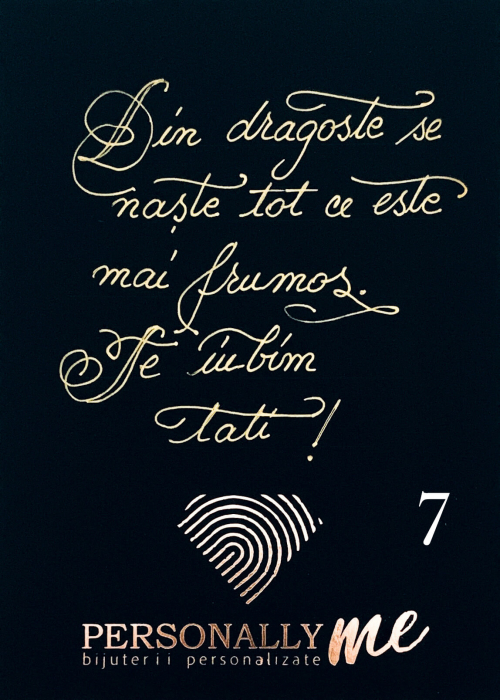 Din dragoste se
naște tot ce este
mai frumos.
Te iubim
tati!
7
PERSONALLY me
bijuterii personalizate